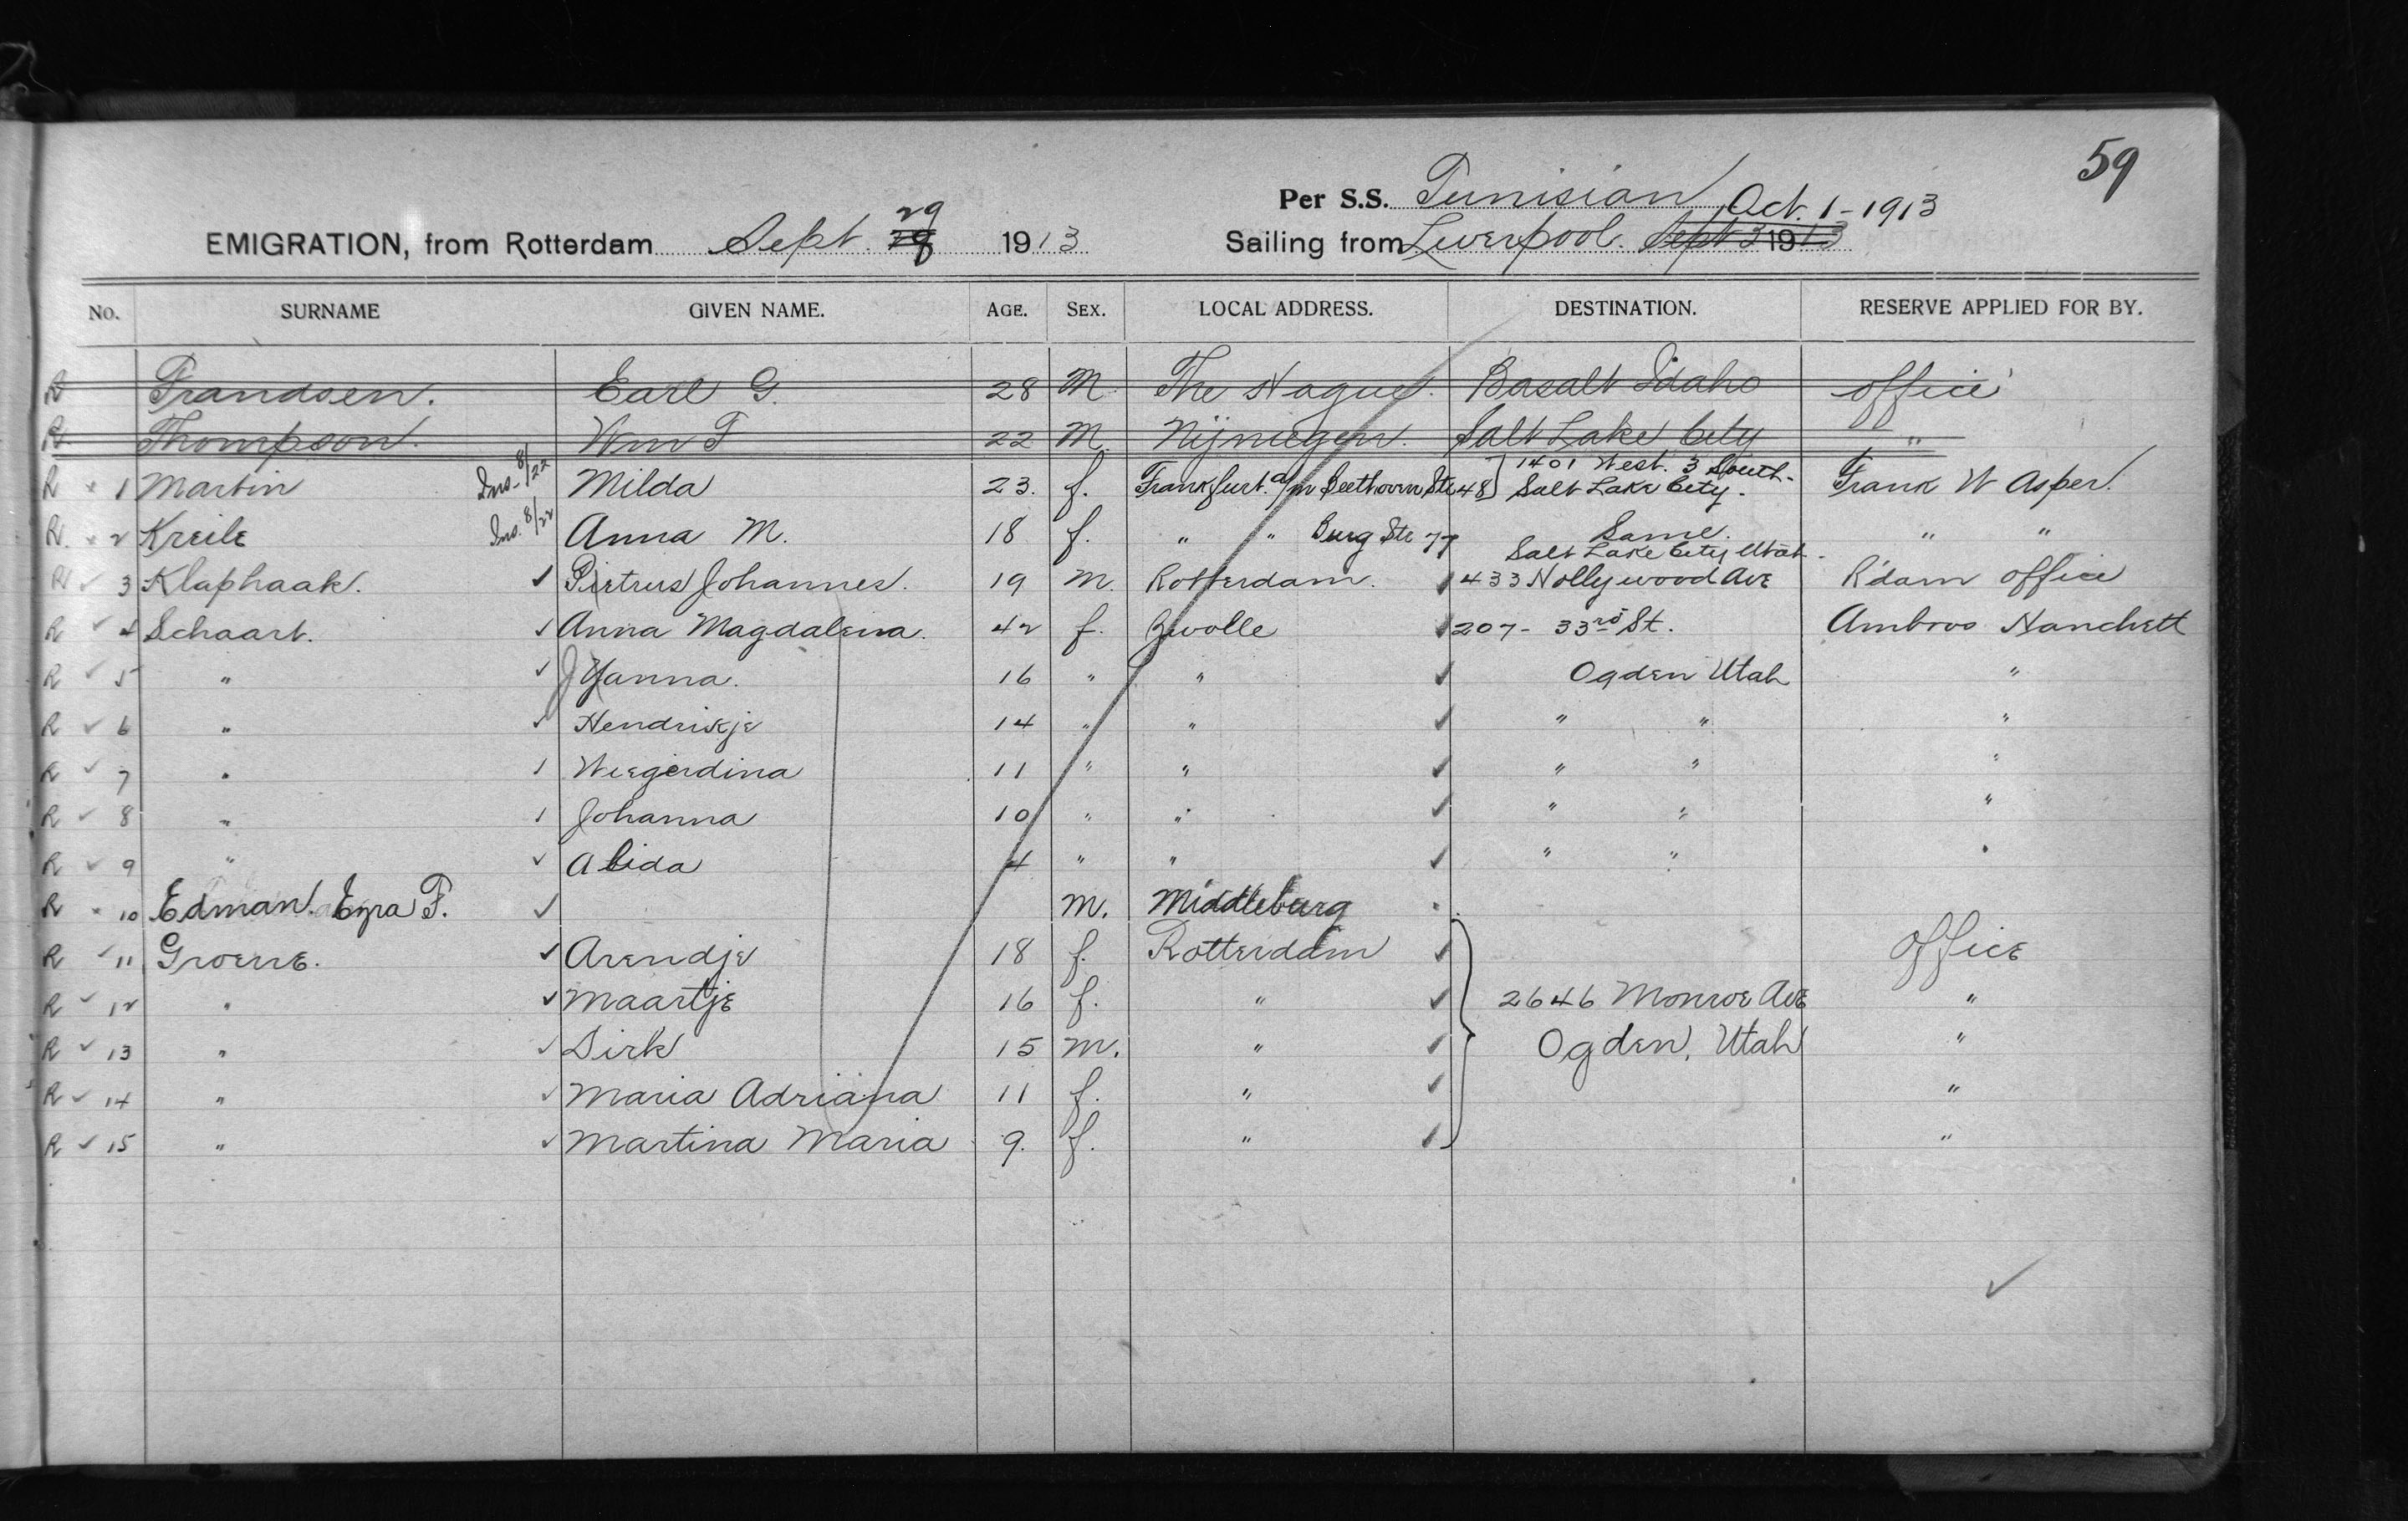 59
Per S.S. Tunisian Oct. 1-1913
EMIGRATION, from Rotterdam Sept. 29 28 1913 Sailing from Liverpool. Sept 3 1913
No. SURNAME GIVEN NAME. AGE. SEX. LOCAL ADDRESS. DESTINATION. RESERVE APPLIED FOR BY.
R Frandsen. Earl G. 28 M The Hague. Basalt Idaho office
R. Thompson. Wm F 22 M. Nijmegen. Salt Lake City "
R × 1 Martin Ins. 8/22 Milda 23. f. Frankfurt a/m Beethovn Ste 48 } 1401 West. 3 South. Salt Lake City. Frank W Asper.
R. × 2 Kreile Ins. 8/22 Anna M. 18 f. " " Burg Ste 77 Same. " "
R ✓ 3 Klaphaak. ✓ Pietrus Johannes. 19 M. Rotterdam. ✓ Salt Lake City Utah. 433 Hollywood Ave R'dam office
R ✓ 4 Schaart. ✓ Anna Magdalena. 42 f. Zwolle ✓ 207 - 33rd St. Ambros Hanchett
R ✓ 5 " ✓ Janna. 16 " " ✓ Ogden Utah "
R ✓ 6 " ✓ Hendrikje 14 " " ✓ " " "
R ✓ 7 " ✓ Weegerdina 11 " " ✓ " " "
R ✓ 8 " ✓ Johanna 10 " " ✓ " " "
R ✓ 9 " ✓ Alida 4 " " ✓ " " "
R × 10 Edman. Ezra F. ✓ M. Middleburg
R ✓ 11 Groene. ✓ Arendje 18 f. Rotterdam ✓ office
R ✓ 12 " ✓ Maartje 16 f. " ✓ 2646 Monroe Ave "
R ✓ 13 " ✓ Dirk 15 M. " ✓ Ogden, Utah "
R ✓ 14 " ✓ Maria Adriana 11 f. " ✓ "
R ✓ 15 " ✓ Martina Maria 9. f. " ✓ "
✓